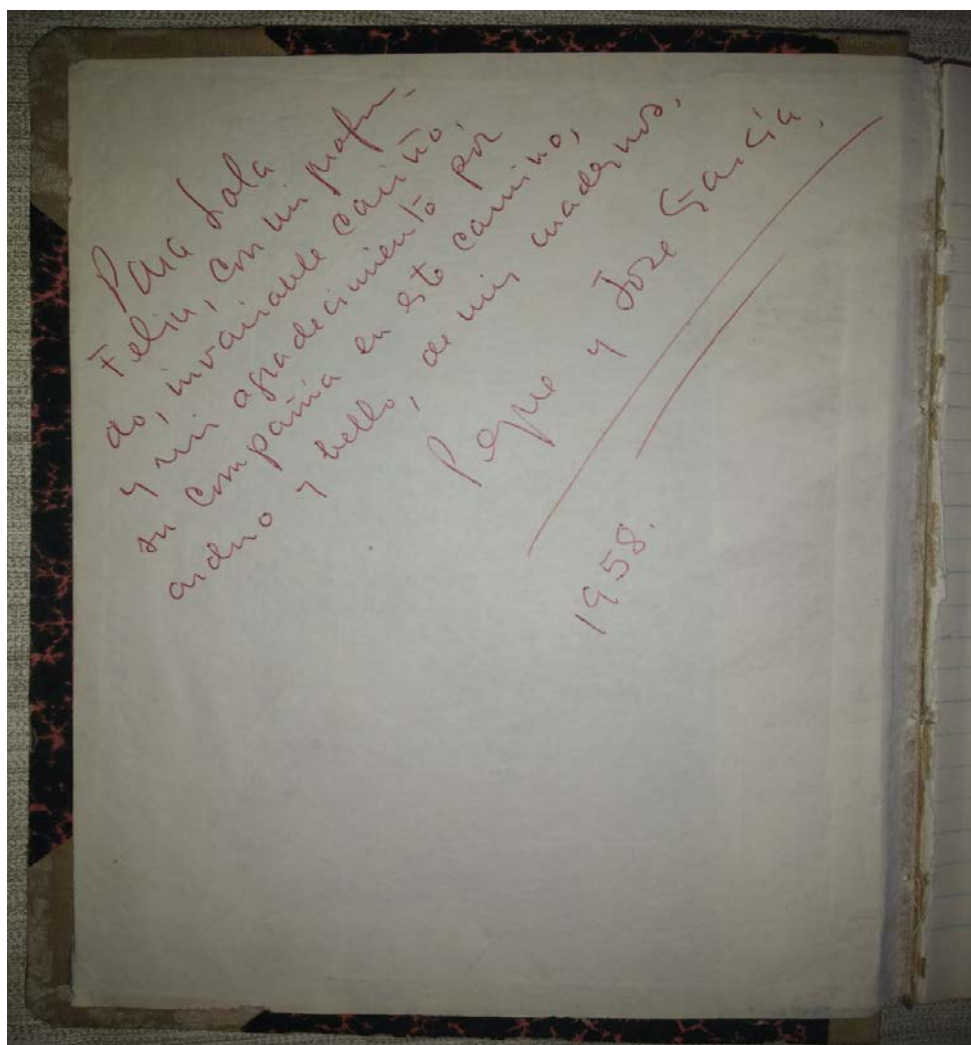 Para Lola
Feliu, con mi profun-
do, invariable cariño,
y mi agradecimiento por
su compañía en este camino,
arduo y bello, de mis cuadernos.
Pepe y José García.
1958.